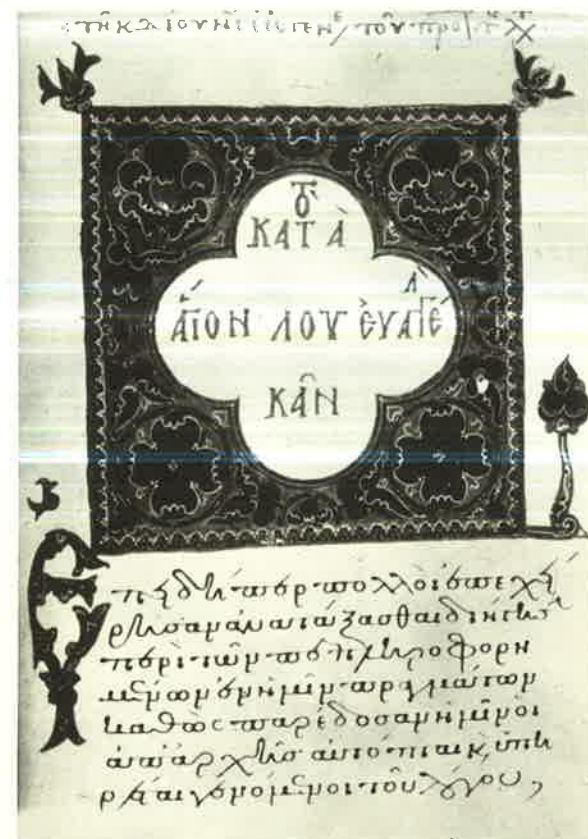 τοῦ προ
τὸ
ΚΑΤᾺ
ἍΓΙΟΝ ΛΟΥ ἘΥΑΓΓΈΛ
ΚᾶΝ
Ἐπειδήπερ πολλοὶ ἐπεχεί
ρησαν ἀνατάξασθαι διήγησι
περὶ τῶν πεπληροφορη
μένων ἐν ἡμῖν πραγμάτων
καθὼς παρέδοσαν ἡμῖν οἱ
ἀπ' ἀρχῆς αὐτόπται κ, ὑπη
ρέται γενόμενοι τοῦ λόγου,